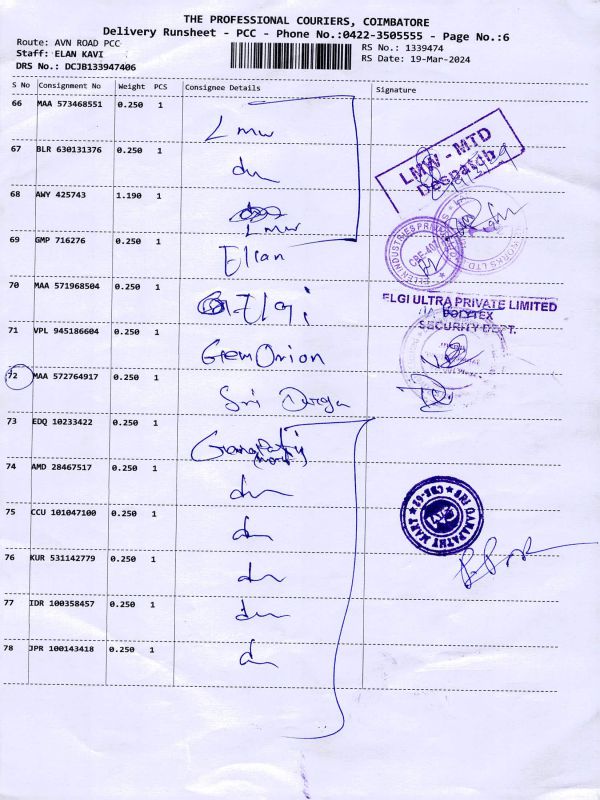 THE PROFESSIONAL COURIERS, COIMBATORE
Delivery Runsheet - PCC - Phone No.:0422-3505555 - Page No.:6
Route: AVN ROAD PCC
RS No.: 1339474
Staff: ELAN KAVI
RS Date: 19-Mar-2024
DRS No.: DCJB133947406
S No Consignment No Weight PCS Consignee Details Signature
66 MAA 573468551 0.250 1
Lmw
67 BLR 630131376 0.250 1
LMW - MTD
Despatch
68 AWY 425743 1.190 1
Lmw
69 GMP 716276 0.250 1
Ellan
70 MAA 571968504 0.250 1
Elgi
ELGI ULTRA PRIVATE LIMITED
SECURITY DEPT.
71 VPL 945186604 0.250 1
Gem Orion
72 MAA 572764917 0.250 1
Sri Durga
73 EDQ 10233422 0.250 1
Ganapathy
(mart)
74 AMD 28467517 0.250 1
75 CCU 101047100 0.250 1
SRI GANAPATHY MART
76 KUR 531142779 0.250 1
77 IDR 100358457 0.250 1
78 JPR 100143418 0.250 1